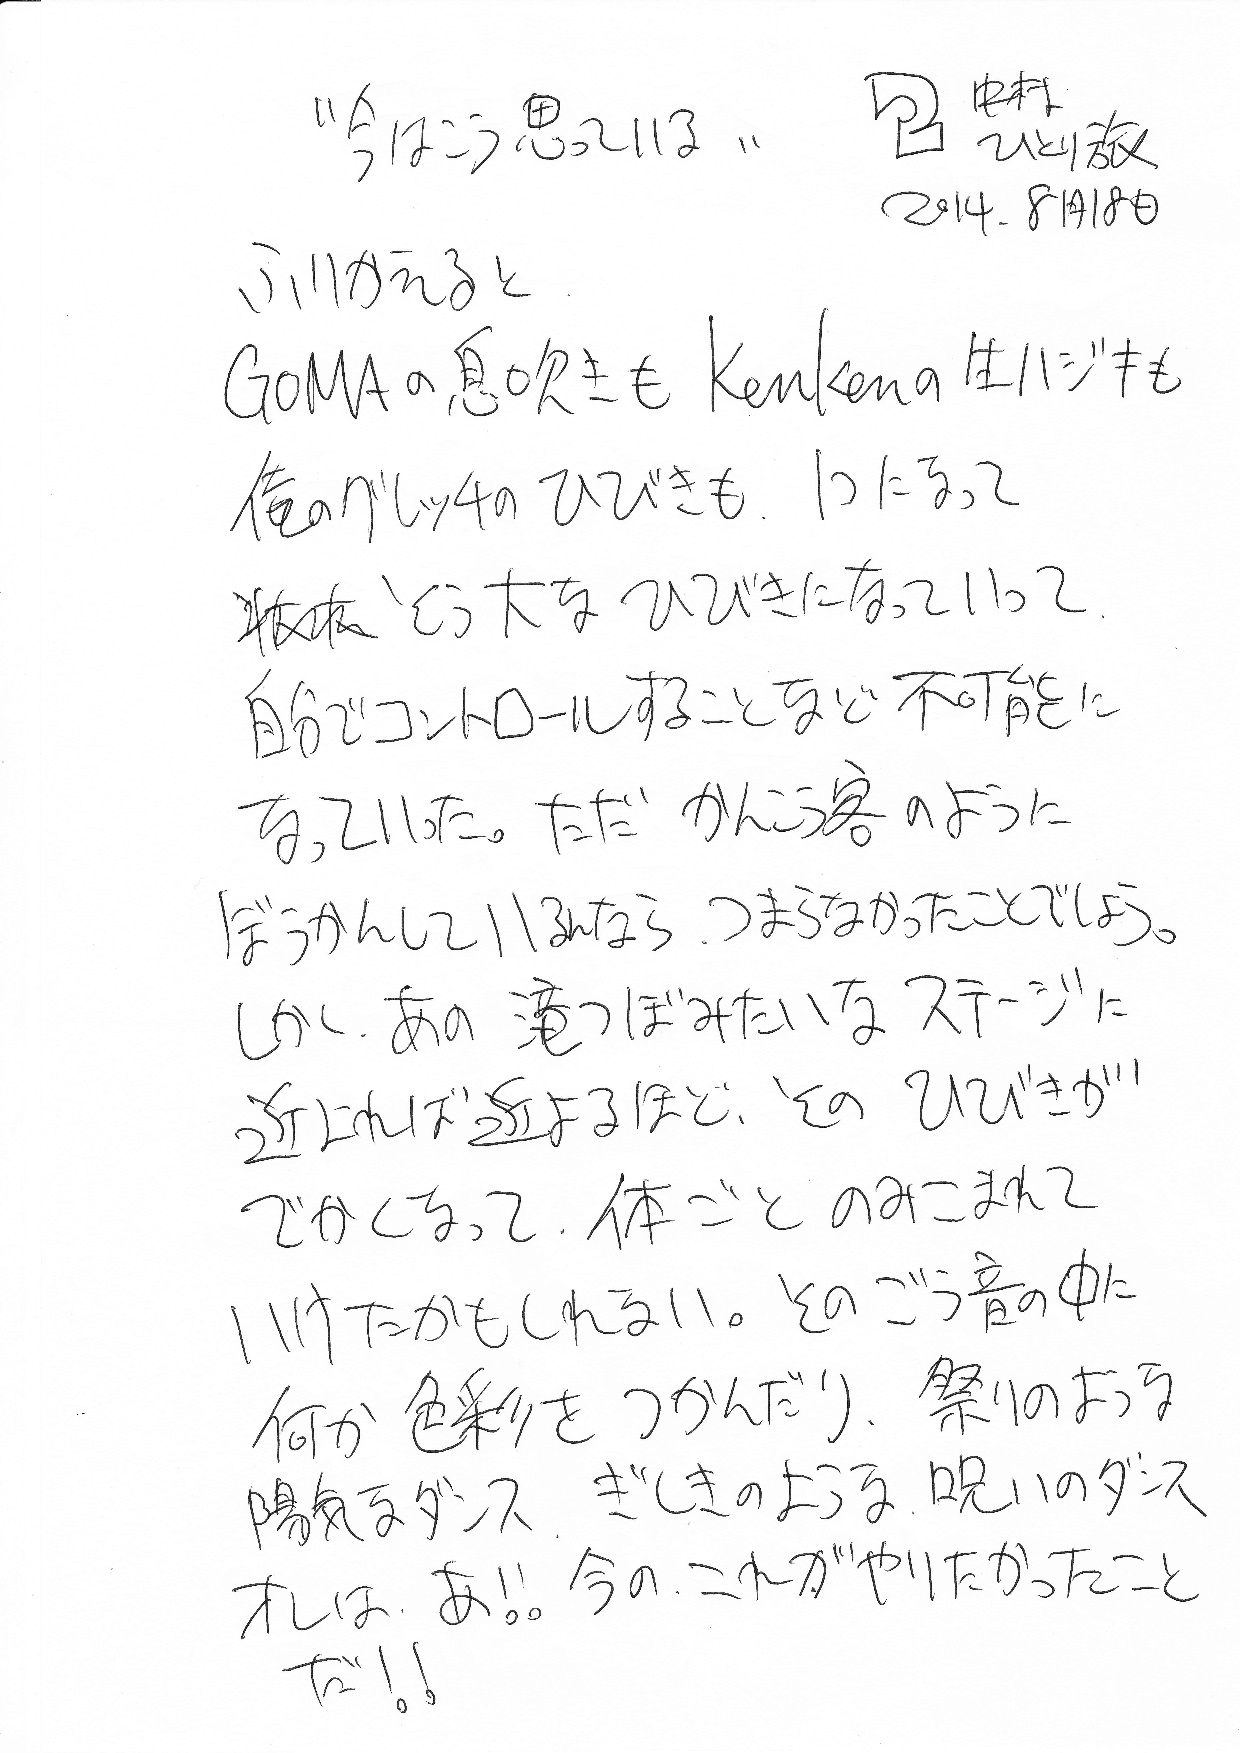 "今はこう思っている"
中村
ひとり旅
2014. 8月18日
ふりかえると
GOMAの息吹きも KenKenの生ハジキも
俺のグレッチのひびきも、1つになって
とう大なひびきになっていって、
自分でコントロールすることなど不可能に
なっていった。ただ かんこう客のように
ぼうかんしているんなら、つまらなかったことでしょう。
しかし、あの滝つぼみたいなステージに
近よれば近よるほど、そのひびきが
でかくなって、体ごとのみこまれて
いけたかもしれない。そのごう音の中に
何か色彩をつかんだり、祭りのような
陽気なダンス、ぎしきのような、呪いのダンス
オレは、あ!!今の、これがやりたかったこと
だ!!